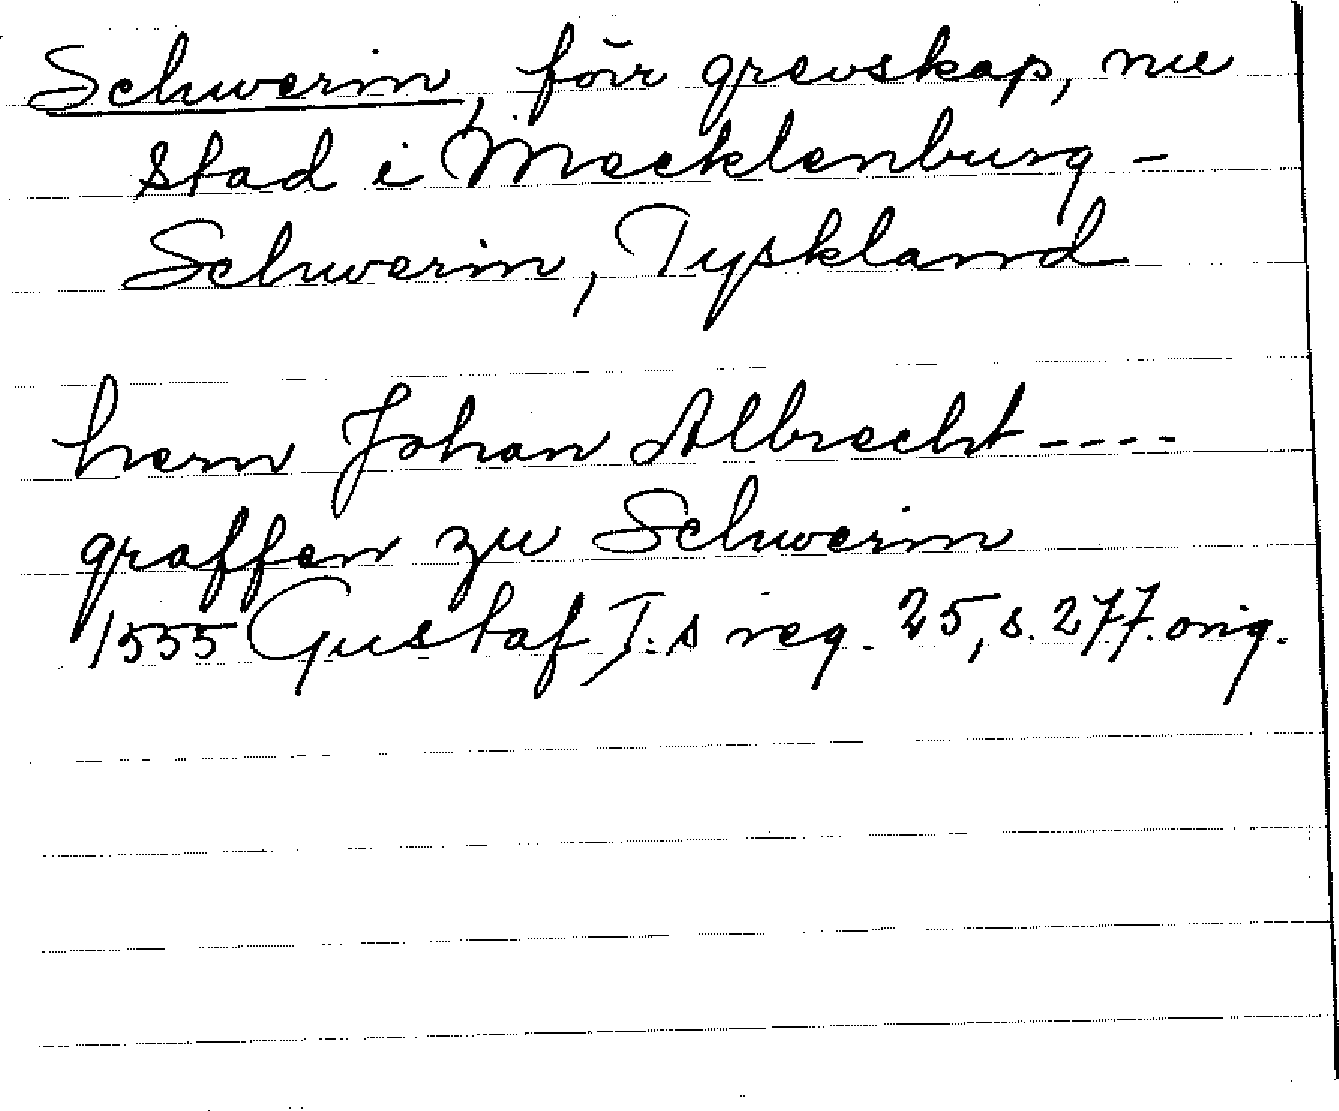 Schwerin, förr grevskap, nu
stad i Mecklenburg-
Schwerin, Tyskland
hern Johan Albrecht ----
graffen zu Schwerin
1555 Gustaf I:s reg. 25, s. 277. orig.